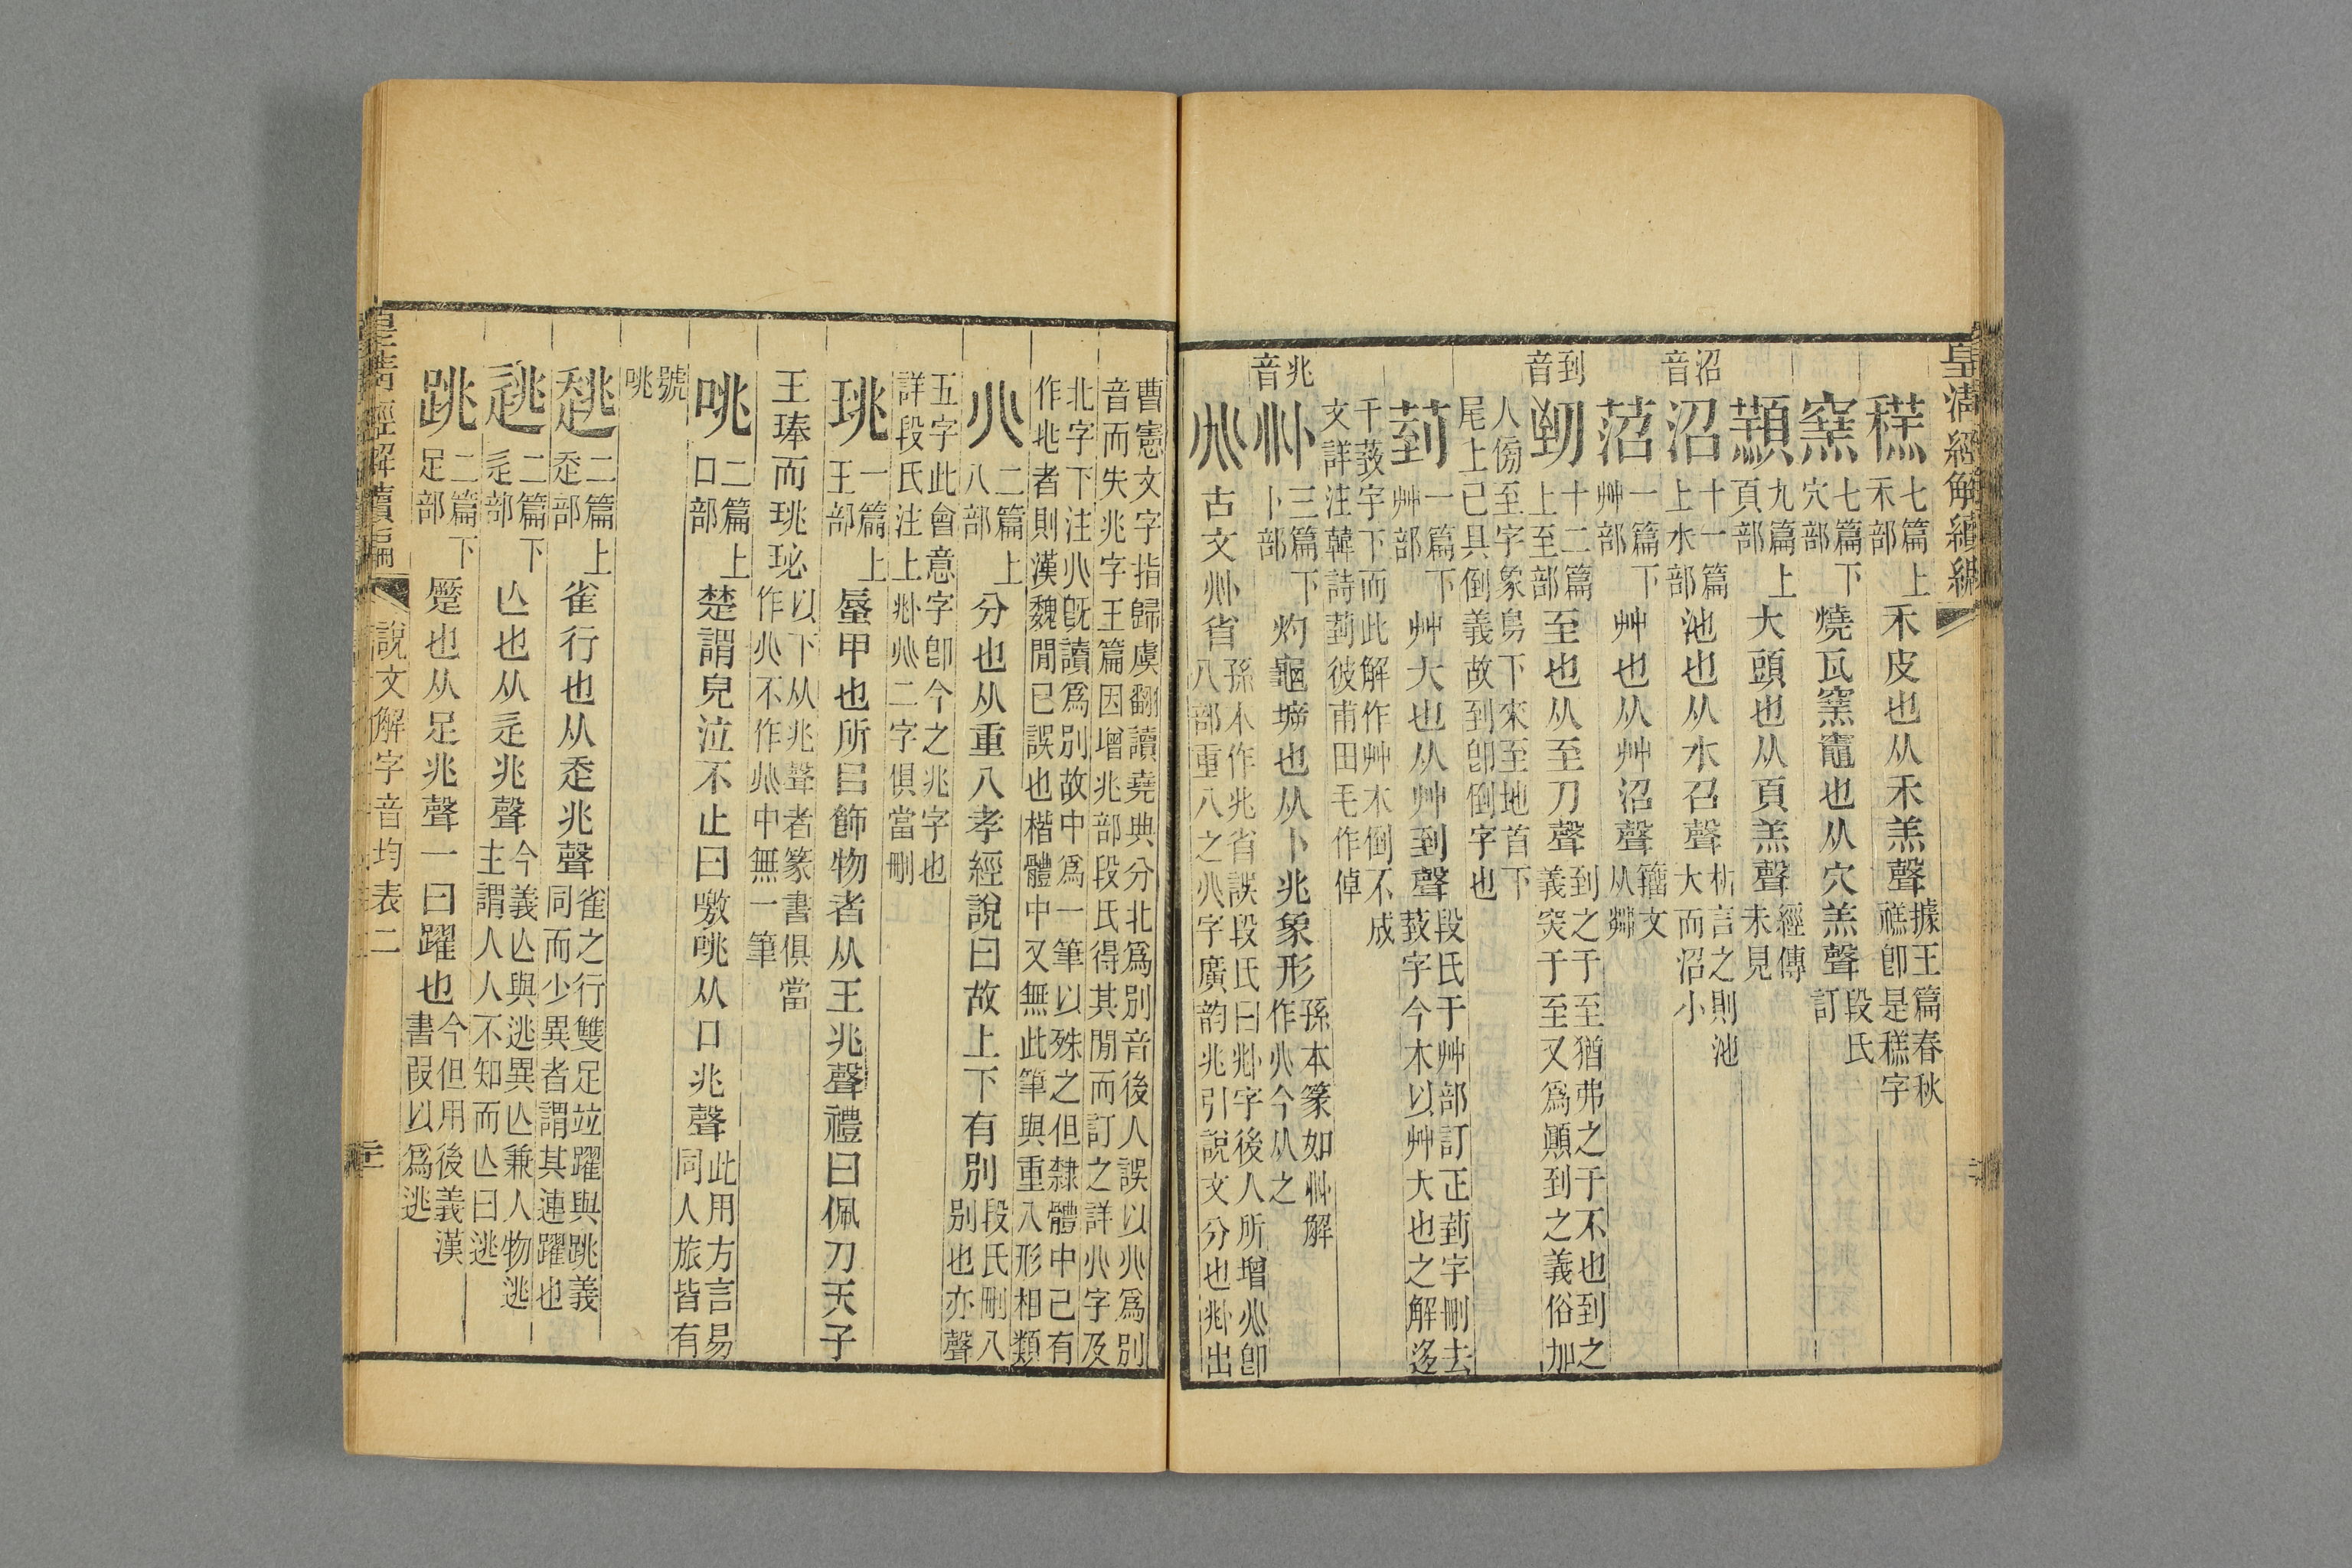 皇清經解續編
穛七篇上禾部禾皮也从禾羔聲據玉篇春秋穛卽是穛字
窯七篇下穴部燒瓦窯竈也从穴羔聲段氏訂
顤九篇上頁部大頭也从頁羔聲經傳未見
沼音沼十一篇上水部池也从水召聲析言之則池大而沼小
菬一篇下艸部艸也从艸沼聲籒文从茻
到音𦤶十二篇上至部至也从至刀聲到之于至猶弗之于不也到之義突于至又爲顚到之義俗加
人㑂至字象鳥下來至地首下尾上已具倒義故到卽倒字也
菿一篇下艸部艸大也从艸到聲段氏于艸部訂正菿字刪去䓸字今木以艸大也之解迻
于䓸字下而此解作艸木倒不成文詳注韓詩菿彼甫田毛作倬
兆音𠧞三篇下卜部灼龜坼也从卜兆象形孫本篆如𠧞解作𠔁今从之
𠔁古文𠧞省孫本作兆省誤段氏曰𠧞字後人所增𠔁卽八部重八之𠔁字廣韵兆引說文分也𠧞出
曹憲文字指歸虞翻讀堯典分北爲別音後人誤以𠔁爲別音而失兆字玉篇因增兆部段氏得其閒而訂之詳𠔁字及
北字下注𠔁旣讀爲別故中爲一筆以殊之但隸體中已有作兆者則漢魏閒已誤也楷體中又無此筆與重八形相類
𠔁二篇上八部分也从重八孝經說曰故上下有別段氏刪八别也亦聲
五字此會意字卽今之兆字也詳段氏注上𠧞𠔁二字俱當刪
珧一篇上玉部蜃甲也所㠯飾物者从王兆聲禮曰佩刀天子
王琫而珧珌以下从兆聲者篆書俱當作𠔁不作𠔁中無一筆
咷二篇上口部楚謂兒泣不止曰噭咷从口兆聲此用方言易同人旅皆有
號咷
趒二篇上走部雀行也从走兆聲雀之行雙足竝躍與跳義同而少異者謂其連躍也
逃二篇下辵部亾也从辵兆聲今義亾與逃異亾兼人物逃主謂人人不知而亾曰逃
跳二篇下足部蹷也从足兆聲一曰躍也今但用後義漢書叚以爲逃
皇淸經解續編
說文解字音均表二